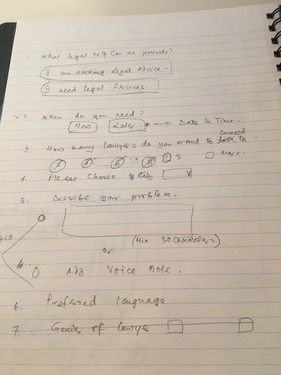 1. What legal help can we provide?
I am seeking legal advice.
I need legal services.
2. When do you need?
Now Later Date & Time.
3. How many lawyers do you want to talk to
connect
5 More.
4. Please Choose City
5. Describe your problem.
(Min 50 characters)
or
Add Voice Note.
6. Preferred language
7. Gender of lawyer